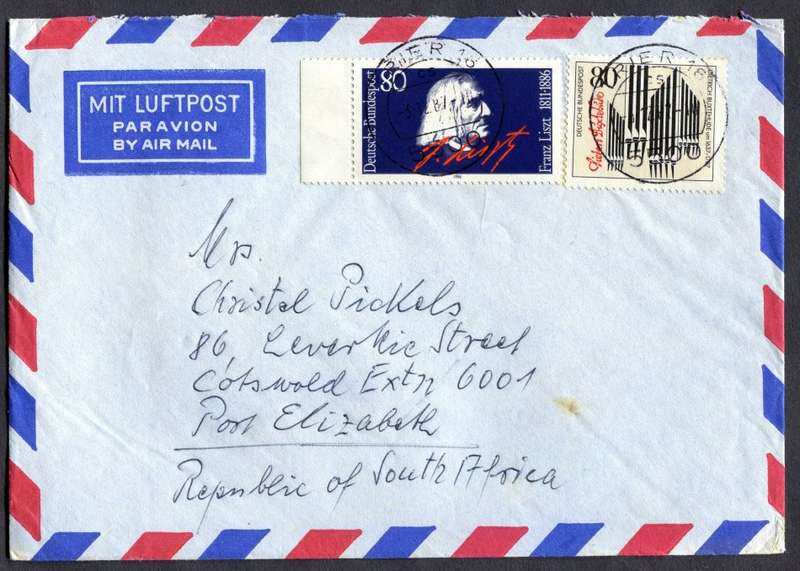 MIT LUFTPOST
PAR AVION
BY AIR MAIL
80
Deutsche Bundespost
F. Liszt
Franz Liszt 1811-1886
80
DEUTSCHE BUNDESPOST
Mrs.
Christel Pickels
86, Leverkie Street
Cotswold Extn 6001
Port Elizabeth
Republic of South Africa